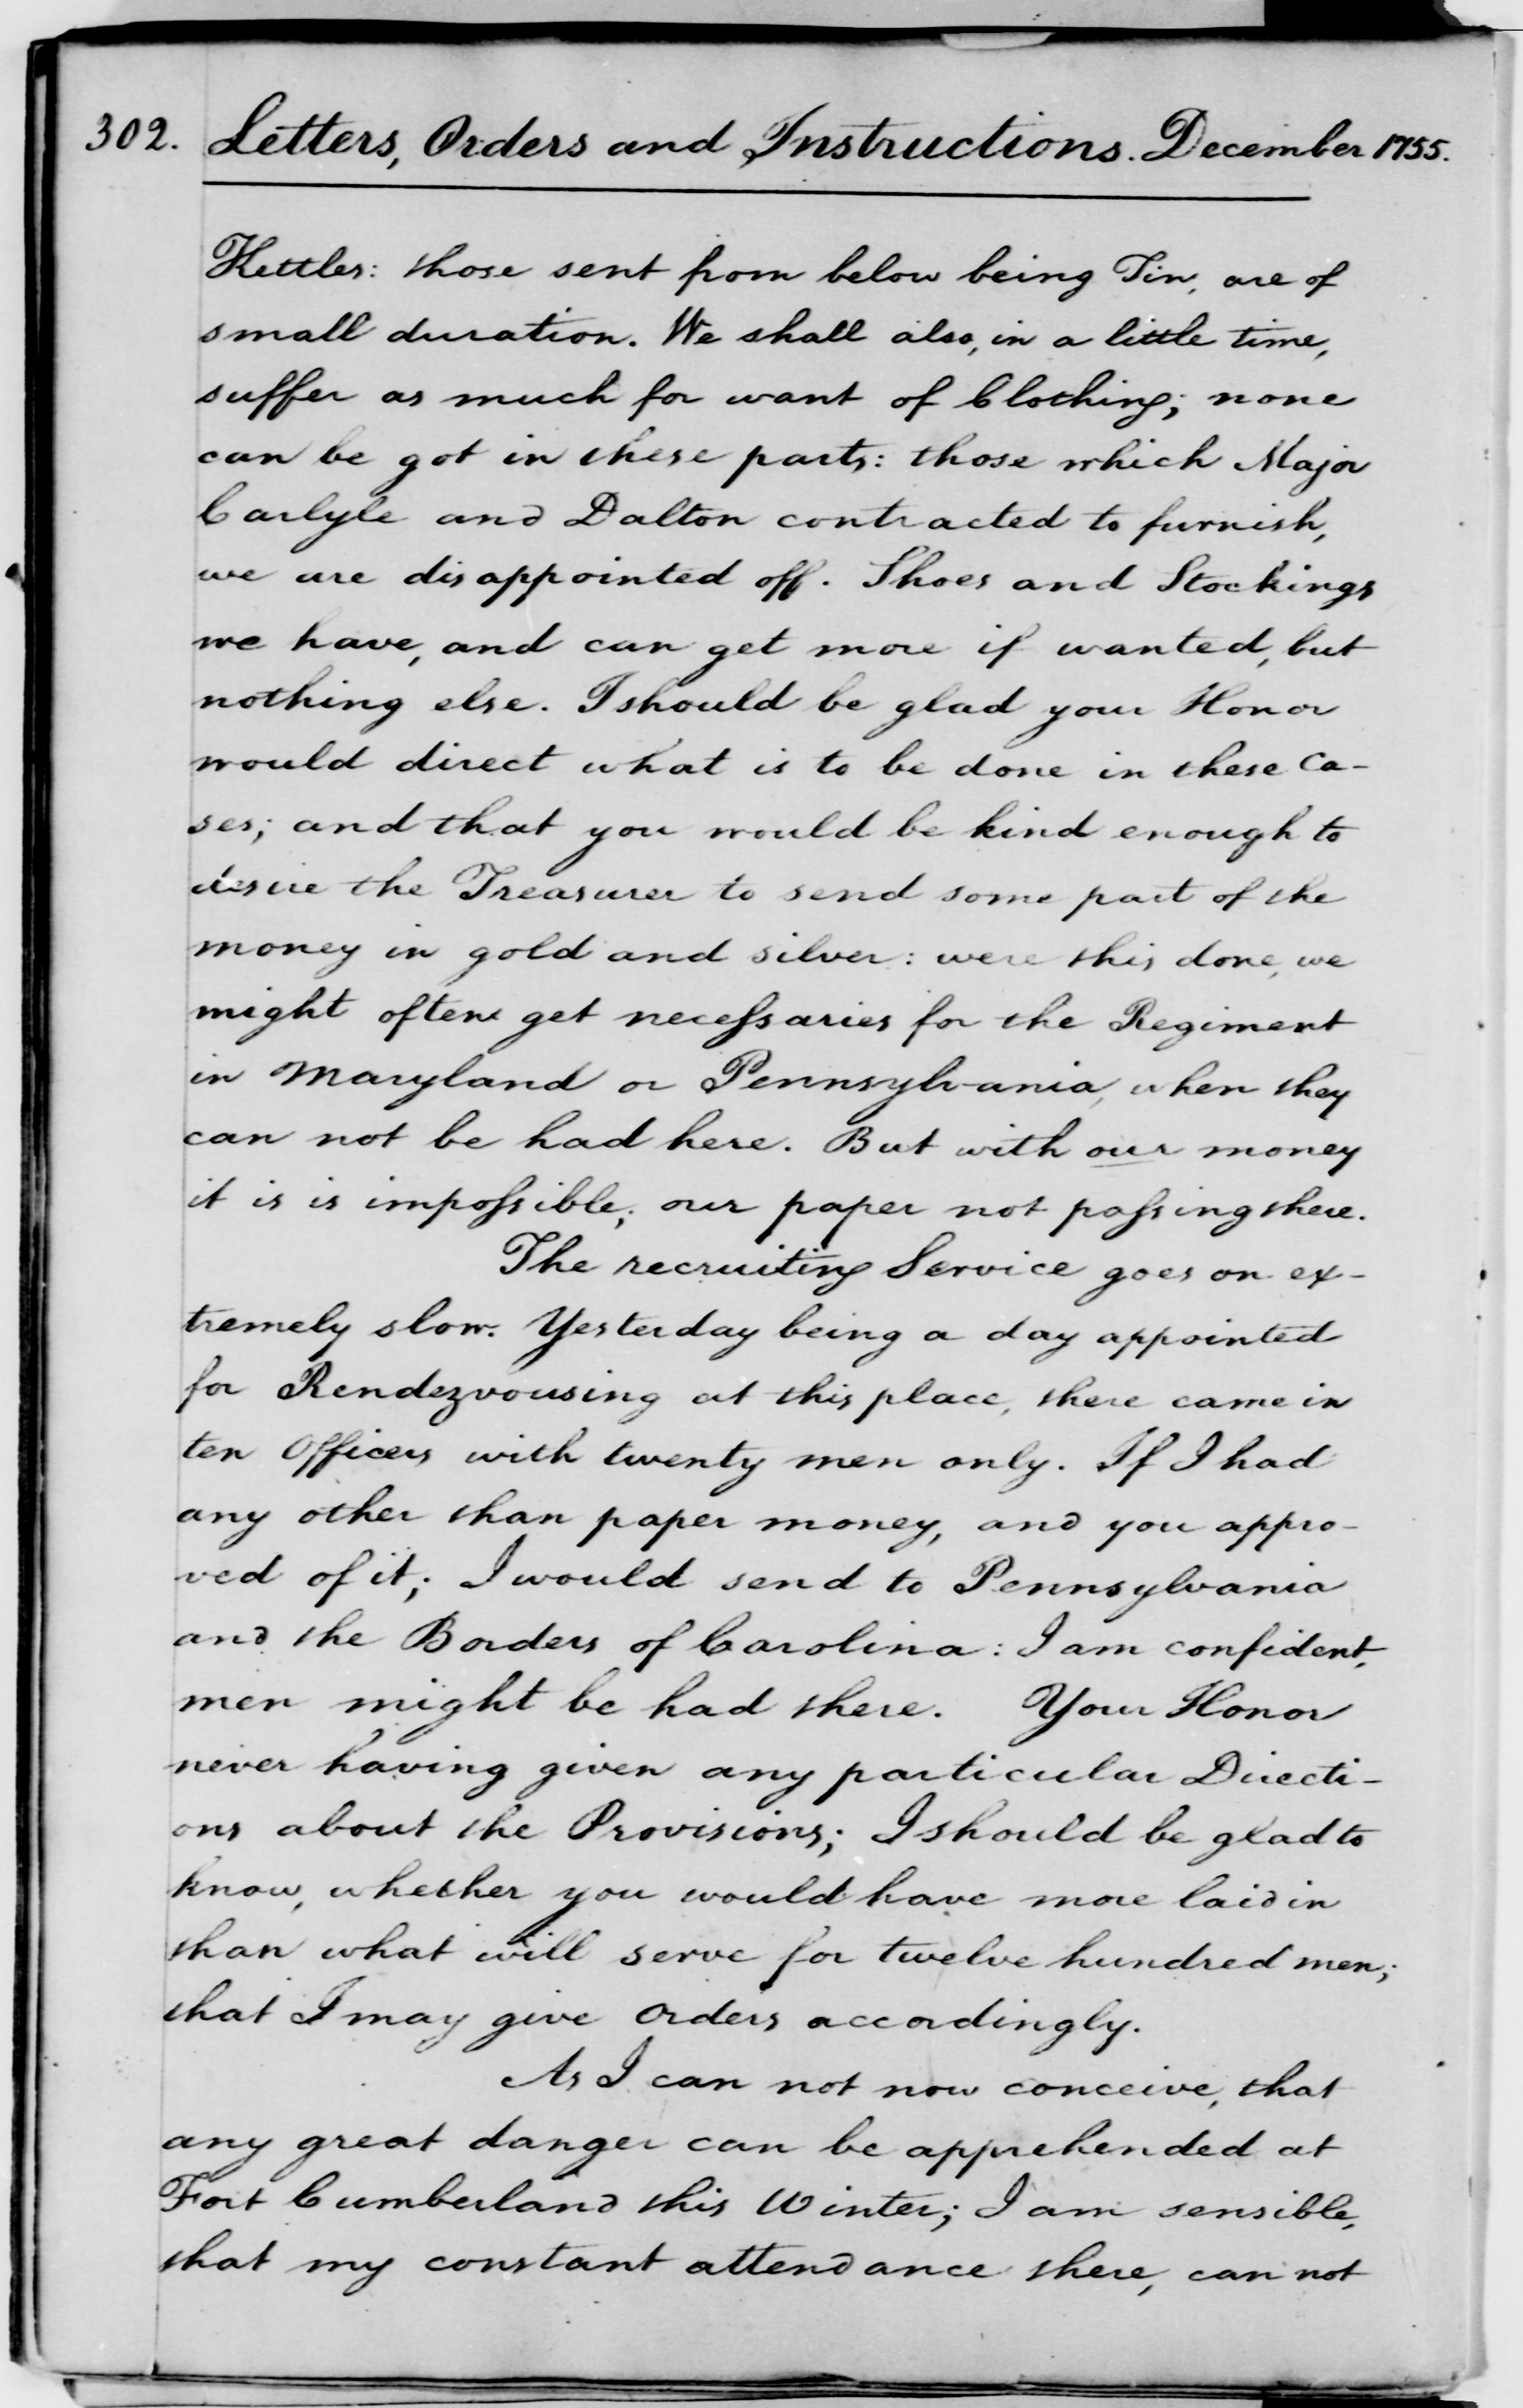 302. Letters, Orders and Instructions. December 1755.
Kettles: those sent from below being Tin, are of
small duration. We shall also, in a little time,
suffer as much for want of Clothing; none
can be got in these parts: those which Major
Carlyle and Dalton contracted to furnish,
we are disappointed off. Shoes and Stockings
we have, and can get more if wanted, but
nothing else. I should be glad your Honor
would direct what is to be done in these ca-
ses; and that you would be kind enough to
desire the Treasurer to send some part of the
money in gold and silver: were this done, we
might often get necessaries for the Regiment
in Maryland or Pennsylvania, when they
can not be had here. But with our money
it is is impossible; our paper not passing there.
The recruiting Service goes on ex-
tremely slow. Yesterday being a day appointed
for Rendezvousing at this place, there came in
ten Officers with twenty men only. If I had
any other than paper money, and you appro-
ved of it; I would send to Pennsylvania
and the Borders of Carolina: I am confident,
men might be had there. Your Honor
never having given any particular Directi-
ons about the Provisions; I should be glad to
know, whether you would have more laid in
than what will serve for twelve hundred men;
that I may give Orders accordingly.
As I can not now conceive, that
any great danger can be apprehended at
Fort Cumberland this Winter; I am sensible,
that my constant attendance there, can not